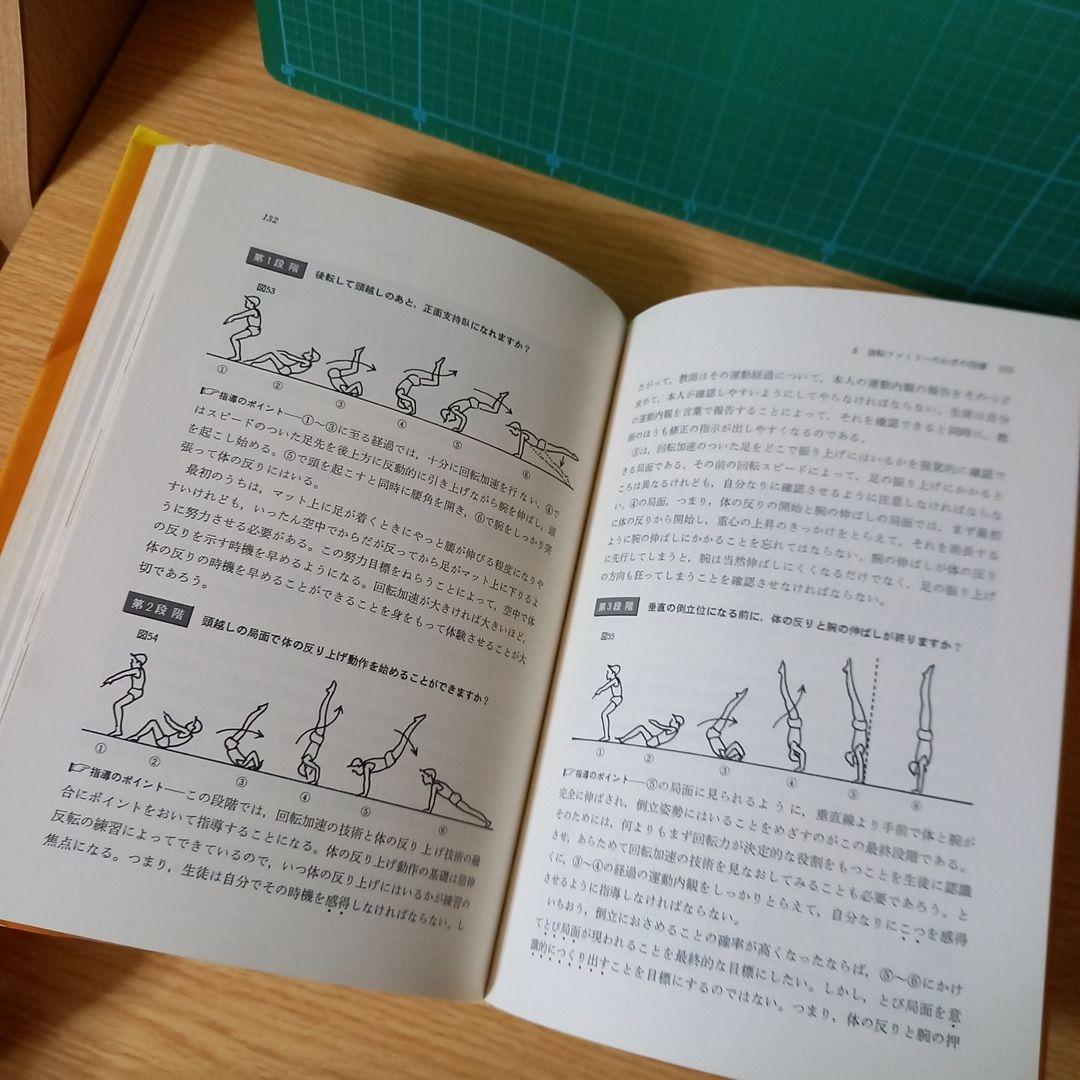 132
第1段階 後転して頭越しのあと，正面支持臥になれますか？
図53
① ② ③ ④ ⑤ ⑥
☞指導のポイント——①〜③に至る経過では，十分に回転加速を行ない，④で
はスピードのついた足先を後上方に反動的に引き上げながら腕を伸ばし，頭
を起こし始める。⑤で頭を起こすと同時に腰角を開き，⑥で腕をしっかり突
張って体の反りにはいる。
最初のうちは，マット上に足が着くときにやっと腰が伸びる程度になりや
すいけれども，いったん空中でからだが反ってから足がマット上に下りるよ
うに努力させる必要がある。この努力目標をねらうことによって，空中で体
の反りを示す時機を早めるようになる。回転加速が大きければ大きいほど，
体の反りの時機を早めることができることを身をもって体験させることが大
切であろう。
第2段階 頭越しの局面で体の反り上げ動作を始めることができますか？
図54
① ② ③ ④ ⑤ ⑥
☞指導のポイント——この段階では，回転加速の技術と体の反り上げ技術の融
合にポイントをおいて指導することになる。体の反り上げ動作の基礎は屈伸
反転の練習によってできているので，いつ体の反り上げにはいるかが練習の
焦点になる。つまり，生徒は自分でその時機を感得しなければならない。し
5 後転ファミリーのわざの指導 133
たがって，教師はその運動経過について，本人の運動内観の報告をそのつど
求めて，本人が確認しやすいようにしてやらなければならない。生徒は自分
の運動内観を言葉で報告することによって，それを確認できると同時に，教
師のほうも修正の指示が出しやすくなるのである。
③は，回転加速のついた足をどこで振り上げにはいるかを視覚的に確認で
きる局面である。その前の回転スピードによって，足の振り上げにかかると
ころは異なるけれども，自分なりに確認させるように注意しなければならな
い。④の局面，つまり，体の反りの開始と腕の伸ばしの局面では，まず最初
に体の反りから開始し，重心の上昇のきっかけをとらえて，それを助長する
ように腕の伸ばしにかかることを忘れてはならない。腕の伸ばしが体の反り
に先行してしまうと，腕は当然伸ばしにくくなるだけでなく，足の振り上げ
の方向も狂ってしまうことを確認させなければならない。
第3段階 垂直の倒立位になる前に，体の反りと腕の伸ばしが終りますか？
図55
① ② ③ ④ ⑤ ⑥
☞指導のポイント——⑤の局面に見られるように，垂直線より手前で体と腕が
完全に伸ばされ，倒立姿勢にはいることをめざすのがこの最終段階である。
そのためには，何よりもまず回転力が決定的な役割をもつことを生徒に認識
させ，あらためて回転加速の技術を見なおしてみることも必要であろう。と
くに，③〜④の経過の運動内観をしっかりとらえて，自分なりにこつを感得
させるように指導しなければならない。
いちおう，倒立におさめることの確率が高くなったならば，⑤〜⑥にかけ
てとび局面が現われることを最終的な目標にしたい。しかし，とび局面を意
識的につくり出すことを目標にするのではない。つまり，体の反りと腕の押